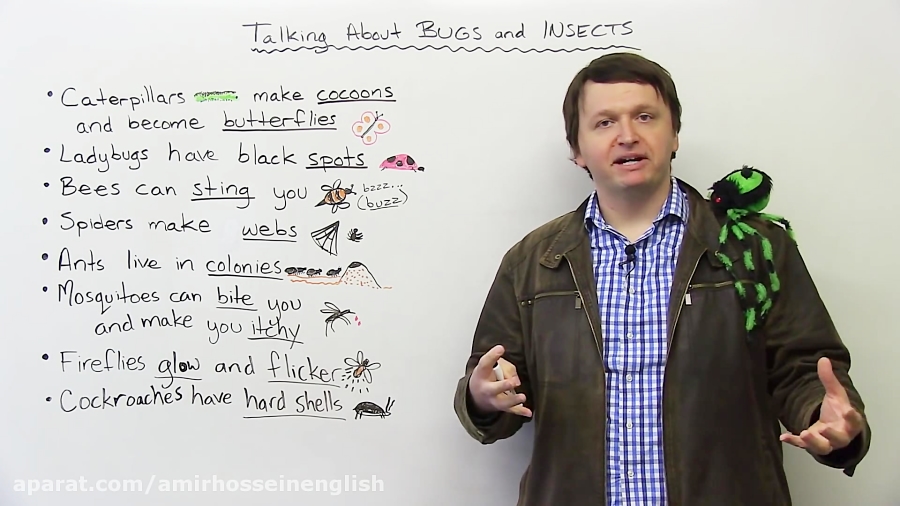 Talking About BUGS and INSECTS
• Caterpillars make cocoons
and become butterflies
• Ladybugs have black spots
• Bees can sting you bzzz...
(buzz)
• Spiders make webs
• Ants live in colonies
• Mosquitoes can bite you
and make you itchy
• Fireflies glow and flicker
• Cockroaches have hard shells
aparat.com/amirhosseinenglish